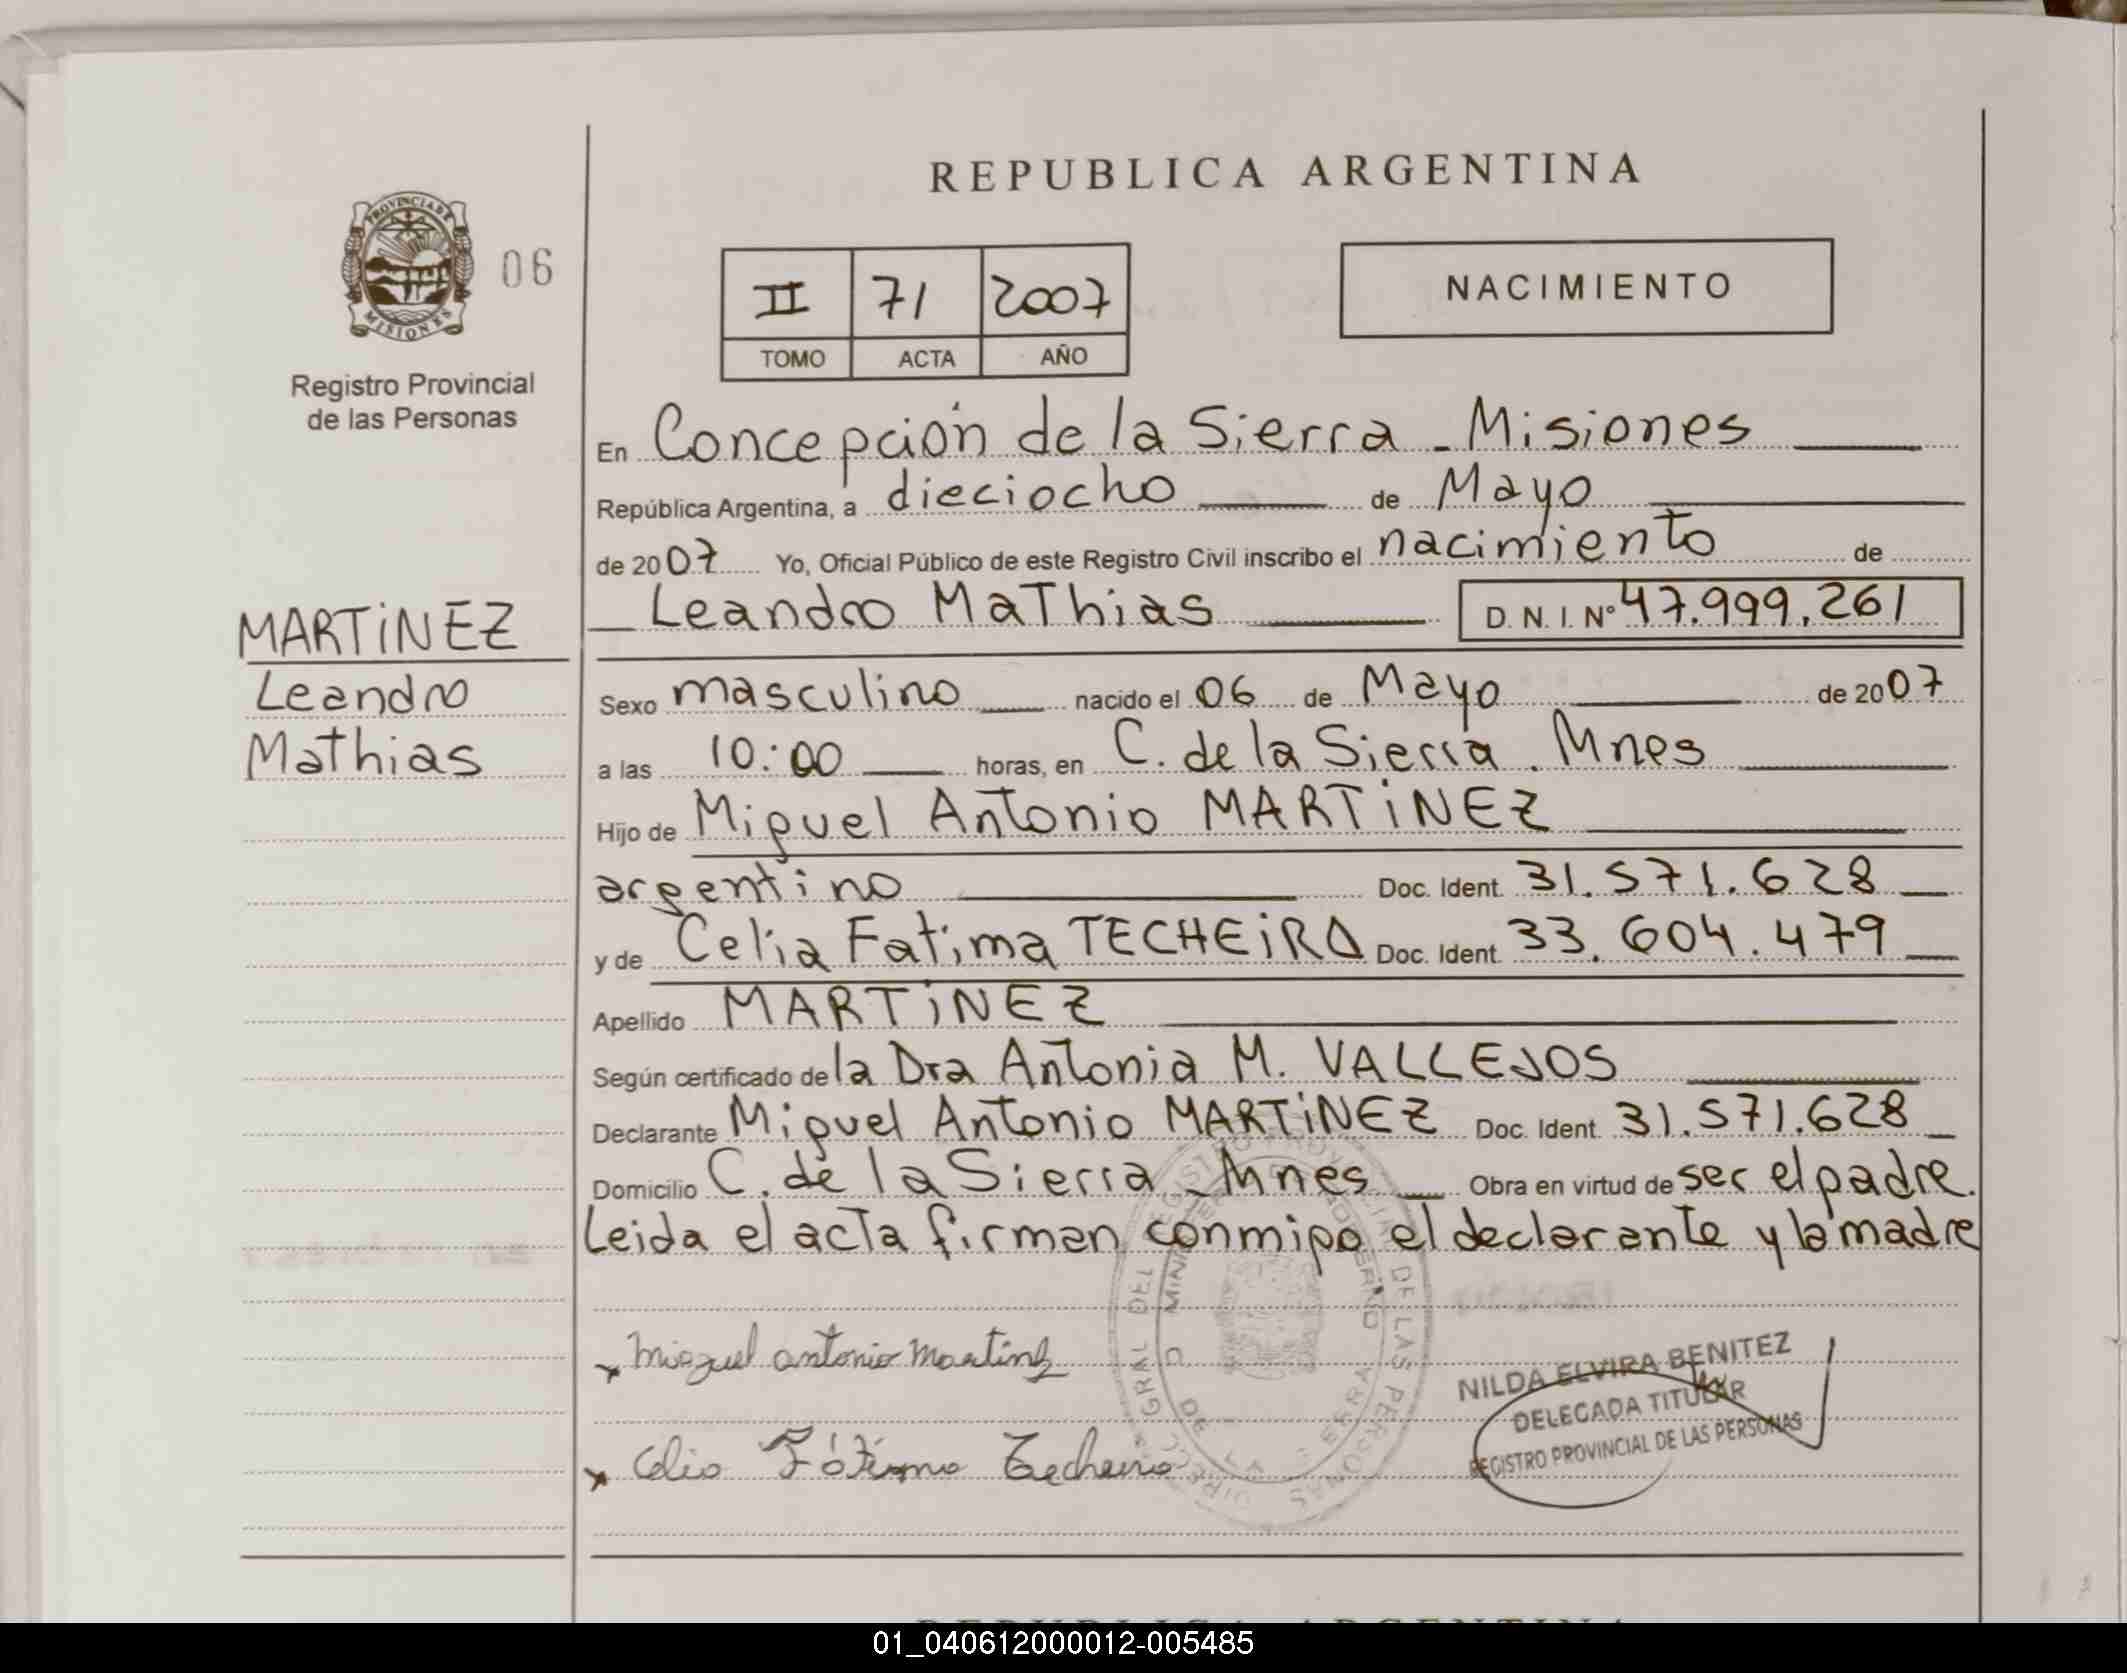 REPUBLICA ARGENTINA
PROVINCIA DE MISIONES
06
Registro Provincial
de las Personas
II 71 2007
TOMO ACTA AÑO
NACIMIENTO
En Concepción de la Sierra - Misiones
República Argentina, a dieciocho de Mayo
de 2007 Yo, Oficial Público de este Registro Civil inscribo el nacimiento de
Leandro Mathias D. N. I. Nº 47.999.261
MARTINEZ
Leandro
Mathias
Sexo masculino nacido el 06 de Mayo de 2007
a las 10:00 horas, en C. de la Sierra. Mnes
Hijo de Miguel Antonio MARTINEZ
argentino Doc. Ident. 31.571.628
y de Celia Fatima TECHEIRO Doc. Ident. 33.604.479
Apellido MARTINEZ
Según certificado de la Dra Antonia M. VALLEJOS
Declarante Miguel Antonio MARTINEZ Doc. Ident. 31.571.628
Domicilio C. de la Sierra - Mnes Obra en virtud de ser el padre.
Leida el acta firman conmigo el declarante y la madre
x Miguel antonio Martinez
x Celia Fátima Techeiro
NILDA ELVIRA BENITEZ
DELEGADA TITULAR
REGISTRO PROVINCIAL DE LAS PERSONAS
01_040612000012-005485